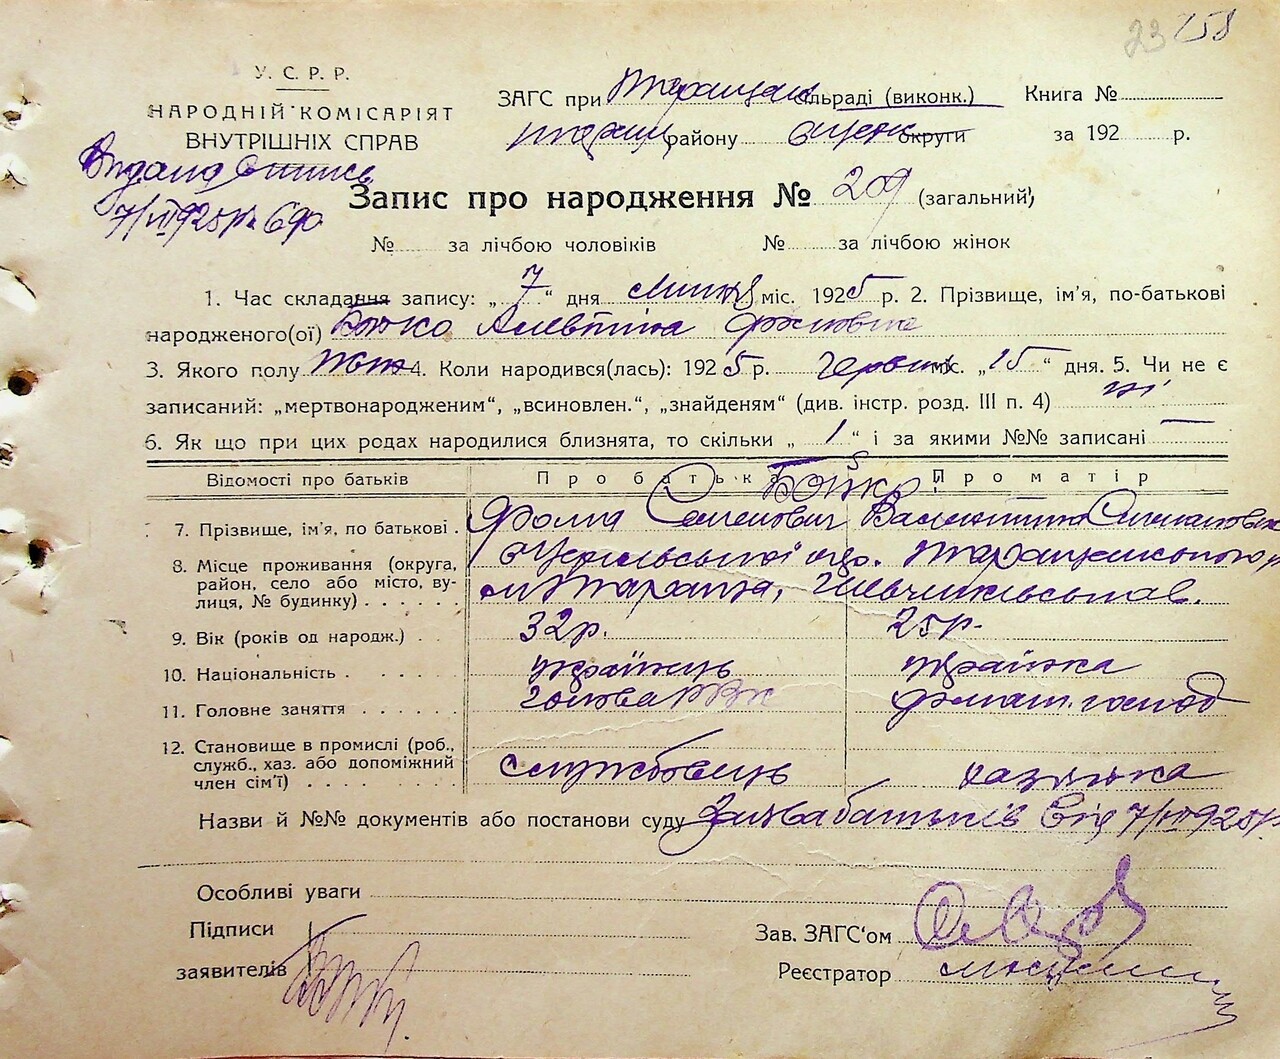 23 258
У. С. Р. Р.
НАРОДНІЙ КОМІСАРІЯТ
ВНУТРІШНІХ СПРАВ
ЗАГС при Таращан сільраді (виконк.) Книга №
району округи за 192 р.
7/VII 925 р.
Запис про народження № 209 (загальний)
№ за лічбою чоловіків № за лічбою жінок
1. Час складання запису: „ 7 “ дня липня міс. 1925 р. 2. Прізвище, ім’я, по-батькові
народженого(ої) Бойко Алевтіна Фомовна
3. Якого полу жін 4. Коли народився(лась): 1925 р. червня міс. „ 15 “ дня. 5. Чи не є
записаний: „мертвонародженим“, „всиновлен.“, „знайденям“ (див. інстр. розд. III п. 4) ні
6. Як що при цих родах народилися близнята, то скільки „ 1 “ і за якими №№ записані —
Відомості про батьків Про батька Про матір
Бойко
7. Прізвище, ім’я, по батькові . Фома Семенович Валентина
8. Місце проживання (округа, район, село або місто, вулиця, № будинку) . . . . . . Таращанського р
м Тараща,
9. Вік (років од народж.) . . 32 р. 25 р.
10. Національність . . . . . українець українка
11. Головне заняття . . . . . . голова РВК домаш. господ
12. Становище в промислі (роб., служб., хаз. або допоміжний член сім’ї) . . . . . . . службовець хазяйка
Назви й №№ документів або постанови суду Заява батьків від 7/VII 925 р.
Особливі уваги
Підписи
заявителів
Зав. ЗАГС‘ом
Реєстратор